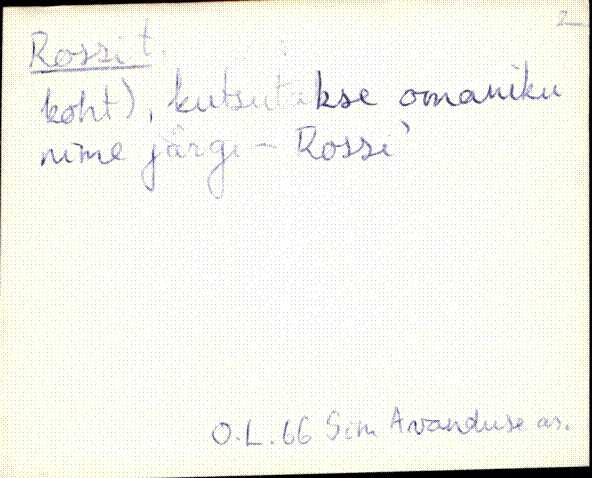 2
Rossi t.
koht), kutsutakse omaniku
nime järgi – Rossi'
O.L. 66 Sim Avanduse as.